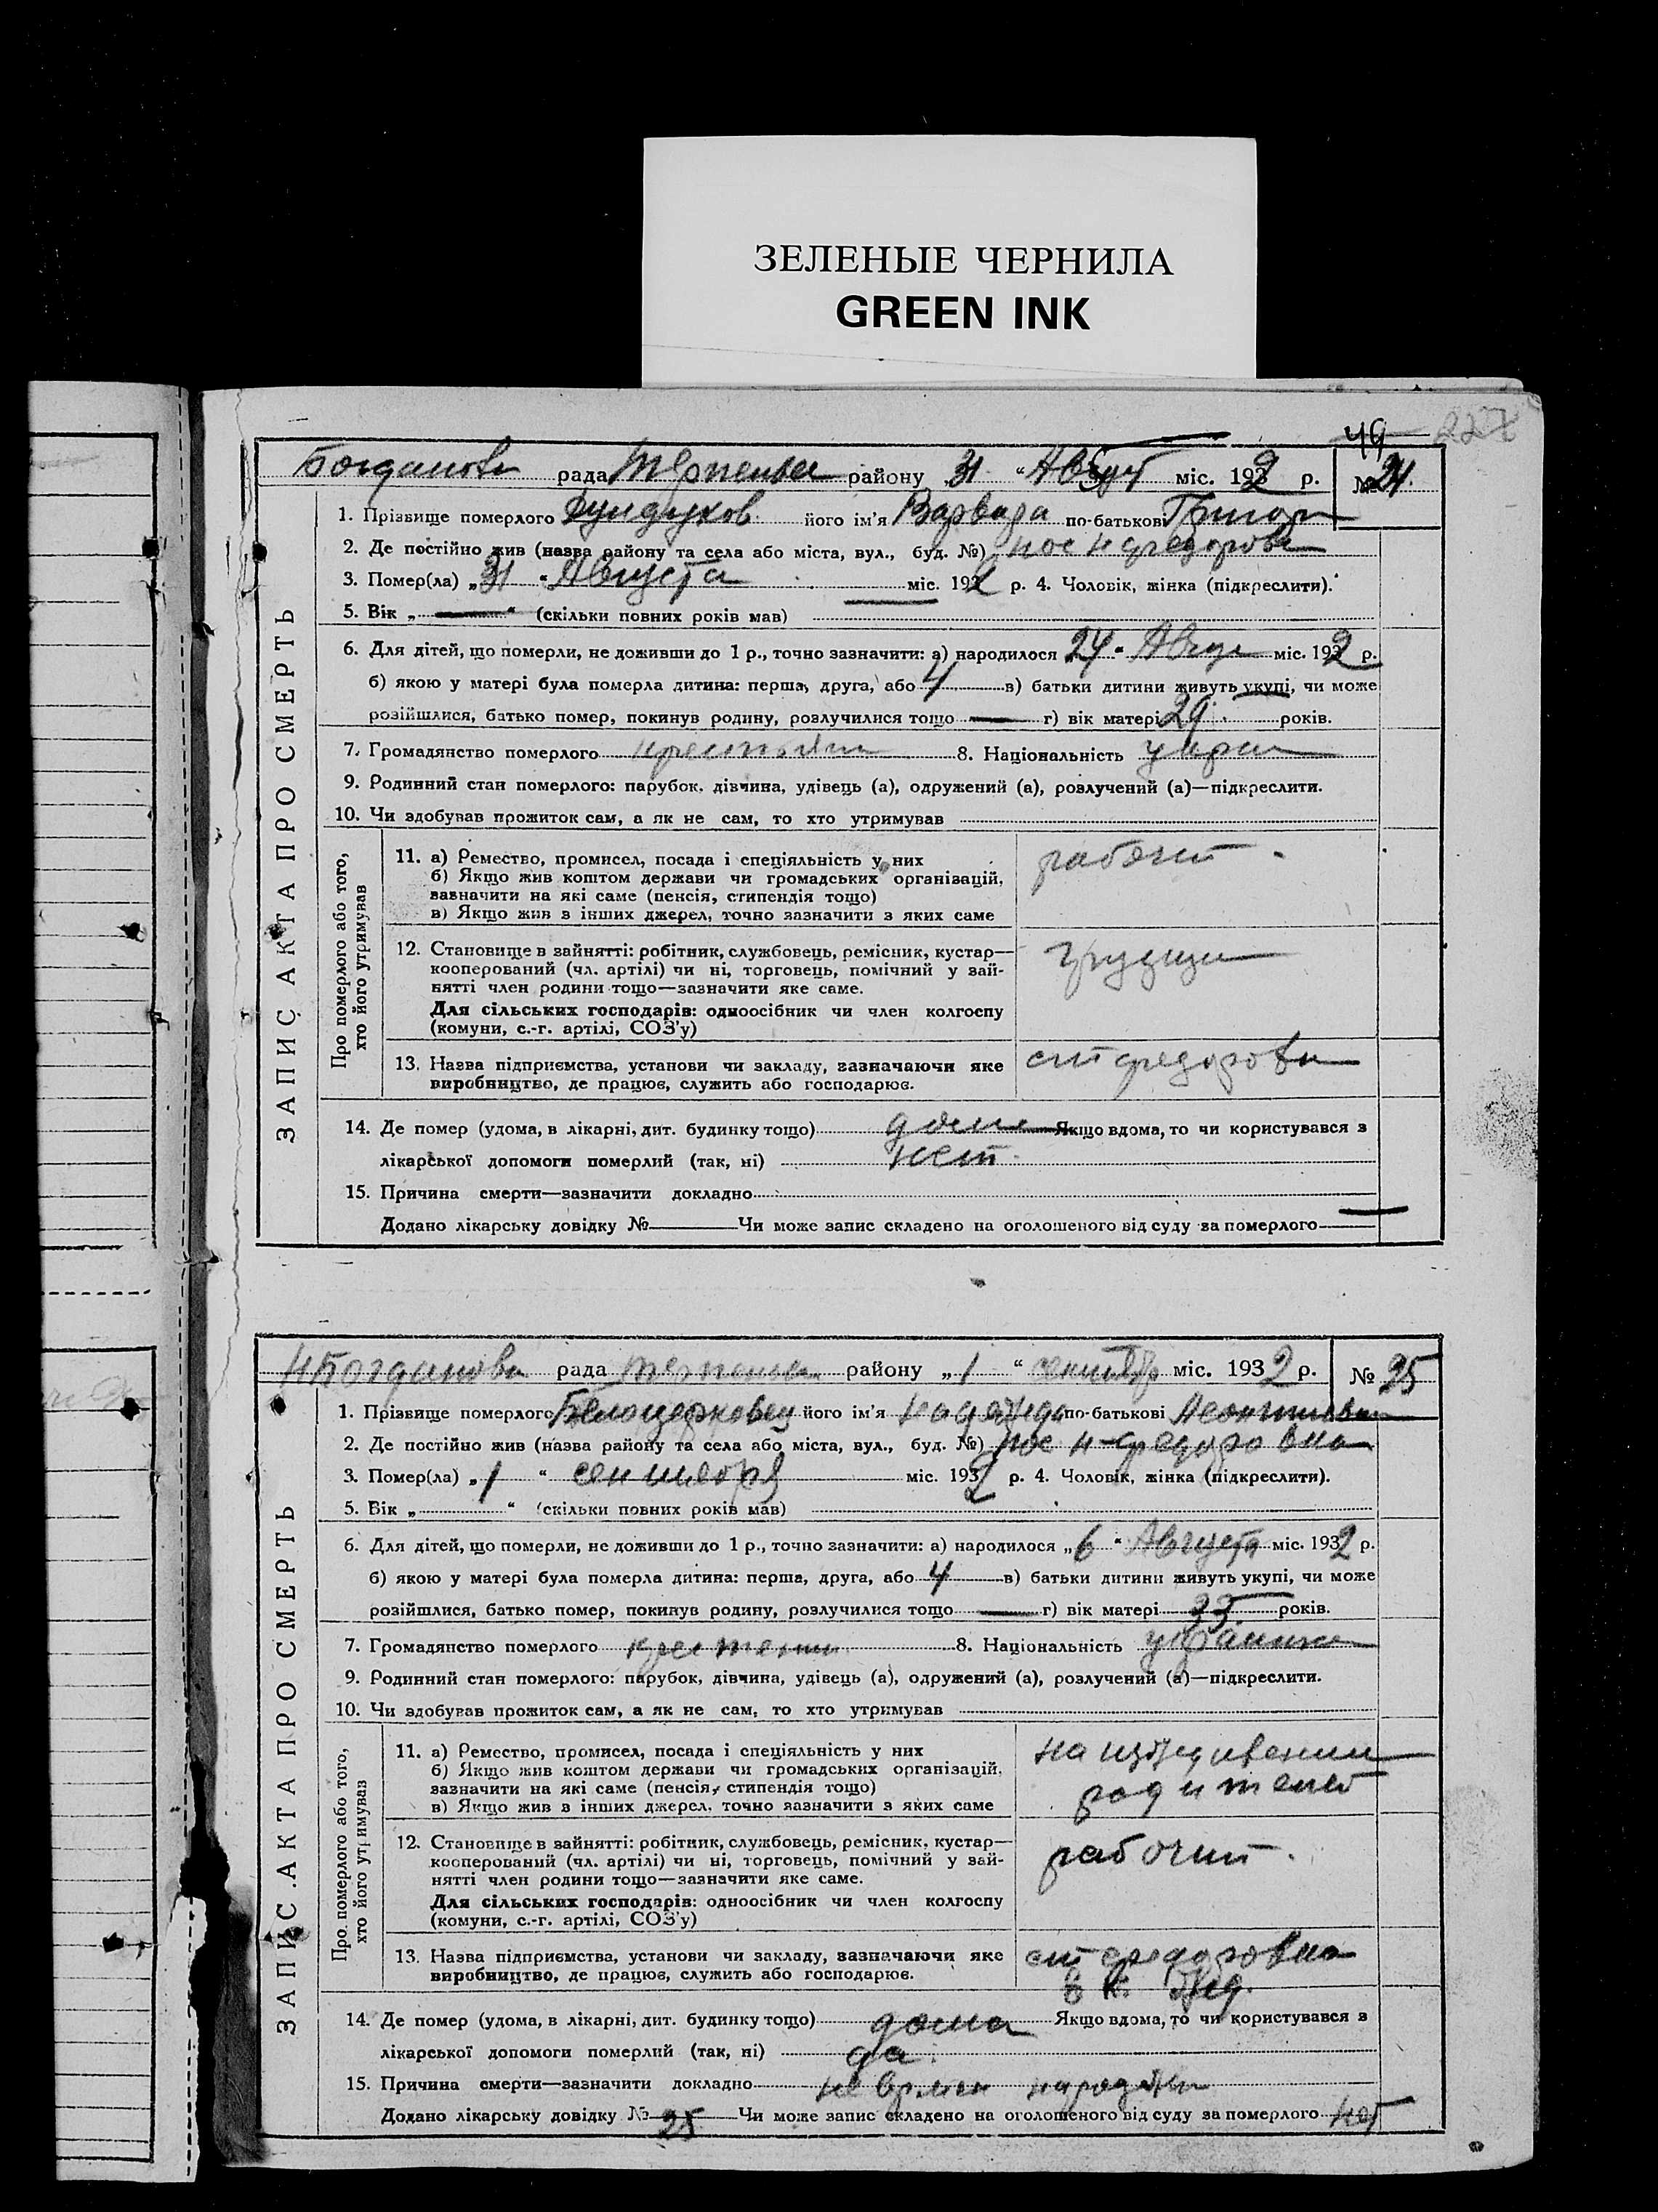 ЗЕЛЕНЫЕ ЧЕРНИЛА
GREEN INK
49 227
Богданов рада район у 31 " Август міс. 1932 р. № 24.
1. Прізвище померлого Дундуков його ім'я Варвара по-батькові Григор
2. Де постійно жив (назва району та села або міста, вул., буд. №) пос
3. Помер(ла) „31 " Августа міс. 1932 р. 4. Чоловік, жінка (підкреслити).
5. Вік „ — " (скільки повних років мав)
6. Для дітей, що померли, не доживши до 1 р., точно зазначити: а) народилося 24 " Авгу міс. 1932 р.
б) якою у матері була померла дитина: перша, друга, або 4 в) батьки дитини живуть укупі, чи може
розійшлися, батько помер, покинув родину, розлучилися тощо — г) вік матері 29 років.
7. Громадянство померлого 8. Національність укра
9. Родинний стан померлого: парубок, дівчина, удівець (а), одружений (а), розлучений (а)—підкреслити.
10. Чи здобував прожиток сам, а як не сам, то хто утримував
ЗАПИС АКТА ПРО СМЕРТЬ
Про померлого або того,
хто його утримував
11. а) Ремество, промисел, посада і спеціяльність у них
б) Якщо жив коштом держави чи громадських організацій,
зазначити на які саме (пенсія, стипендія тощо)
в) Якщо жив з інших джерел, точно зазначити з яких саме
рабочий
12. Становище в зайнятті: робітник, службовець, ремісник, кустар—
кооперований (чл. артілі) чи ні, торговець, помічний у зай-
нятті член родини тощо—зазначити яке саме.
Для сільських господарів: одноосібник чи член колгоспу
(комуни, с.-г. артілі, СОЗ'у)
13. Назва підприємства, установи чи закладу, зазначаючи яке
виробництво, де працює, служить або господарює.
14. Де помер (удома, в лікарні, дит. будинку тощо) дома Якщо вдома, то чи користувався з
лікарської допомоги померлий (так, ні) нет
15. Причина смерти—зазначити докладно
Додано лікарську довідку № Чи може запис складено на оголошеного від суду за померлого —
Н Богданови рада району „1 " сентябр міс. 1932 р. № 25
1. Прізвище померлого Белоцерковец його ім'я Надежда по-батькові
2. Де постійно жив (назва району та села або міста, вул., буд. №) пос н-федоровка
3. Помер(ла) „1 " сентября міс. 1932 р. 4. Чоловік, жінка (підкреслити).
5. Вік „ " (скільки повних років мав)
6. Для дітей, що померли, не доживши до 1 р., точно зазначити: а) народилося „6 " Августа міс. 1932 р.
б) якою у матері була померла дитина: перша, друга, або 4 в) батьки дитини живуть укупі, чи може
розійшлися, батько помер, покинув родину, розлучилися тощо — г) вік матері 35. років.
7. Громадянство померлого 8. Національність
9. Родинний стан померлого: парубок, дівчина, удівець (а), одружений (а), розлучений (а)—підкреслити.
10. Чи здобував прожиток сам, а як не сам, то хто утримував
ЗАПИС АКТА ПРО СМЕРТЬ
Про померлого або того,
хто його утримував
11. а) Ремество, промисел, посада і спеціяльність у них
б) Якщо жив коштом держави чи громадських організацій,
зазначити на які саме (пенсія, стипендія тощо)
в) Якщо жив з інших джерел, точно зазначити з яких саме
на иждивении
родителей
12. Становище в зайнятті: робітник, службовець, ремісник, кустар—
кооперований (чл. артілі) чи ні, торговець, помічний у зай-
нятті член родини тощо—зазначити яке саме.
Для сільських господарів: одноосібник чи член колгоспу
(комуни, с.-г. артілі, СОЗ'у)
рабочий.
13. Назва підприємства, установи чи закладу, зазначаючи яке
виробництво, де працює, служить або господарює.
ст федоровка
14. Де помер (удома, в лікарні, дит. будинку тощо) дома Якщо вдома, то чи користувався з
лікарської допомоги померлий (так, ні) да.
15. Причина смерти—зазначити докладно
Додано лікарську довідку № 25 Чи може запис складено на оголошеного від суду за померлого нет